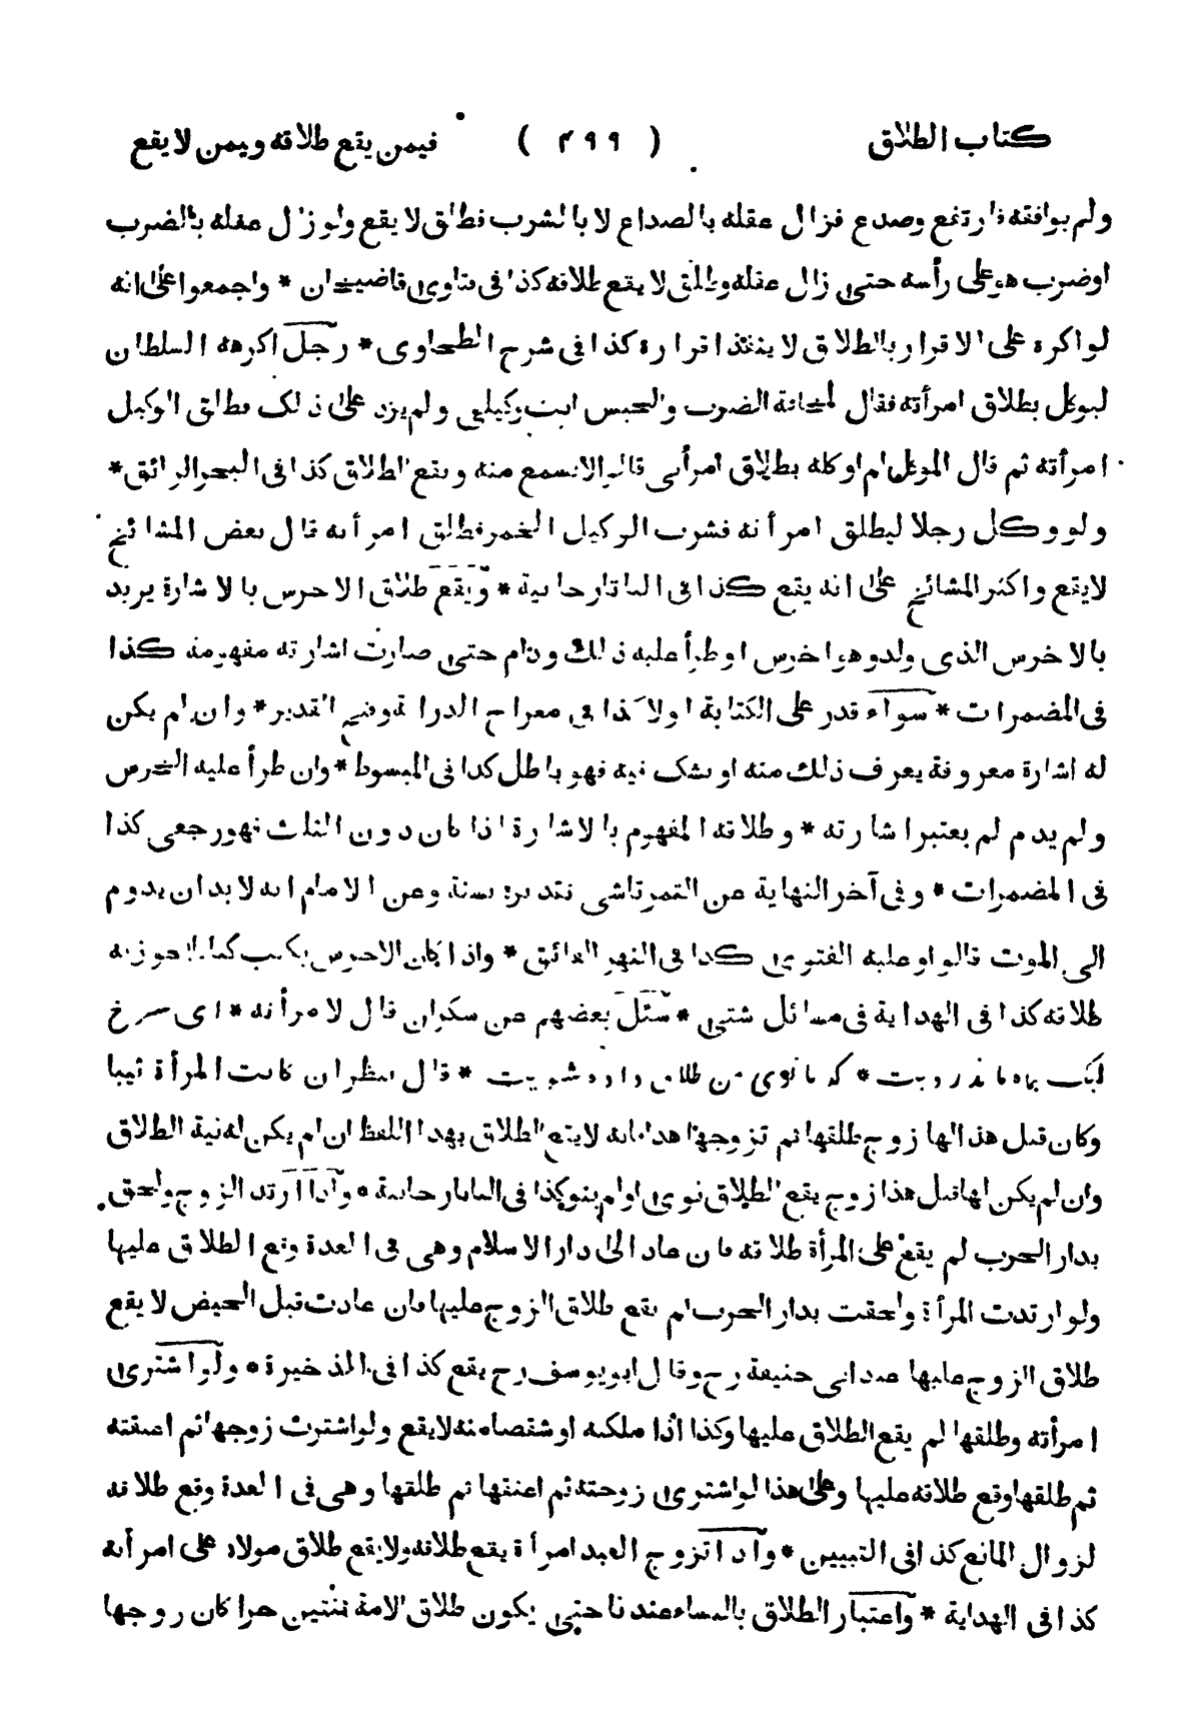 كتاب الطلاق ( ٤٩٩ ) فيمن يقع طلاقه ويمن لا يقع
ولم يوافقه فارتفع وصدع فزال عقله بالصداع لا بالشرب فطلق لا يقع ولو زال عقله بالضرب
اوضرب هو على رأسه حتى زال عقله وطلق لا يقع طلاقه كذا فى فتاوى قاضيخان * واجمعوا على انه
لو اكره على الاقرار بالطلاق لا ينفذ اقراره كذا فى شرح الطحاوى * رجل اكرهه السلطان
ليوكل بطلاق امرأته فقال لمخافة الضرب والحبس انت وكيلى ولم يزد على ذلك فطلق الوكيل
امرأته ثم قال الموكل لم اوكله بطلاق امرأتى قالوا لا يسمع منه ويقع الطلاق كذا فى البحر الرائق *
ولو وكل رجلا ليطلق امرأته فشرب الوكيل الخمر فطلق امرأته قال بعض المشائخ
لا يقع واكثر المشائخ على انه يقع كذا فى التاتارخانية * ويقع طلاق الاخرس بالاشارة يريد
بالاخرس الذى ولد وهو اخرس او طرأ عليه ذلك ودام حتى صارت اشارته مفهومة كذا
فى المضمرات * سواء قدر على الكتابة اولا كذا فى معراج الدراية وفتح القدير * وان لم يكن
له اشارة معروفة يعرف ذلك منه او يشك فيه فهو باطل كذا فى المبسوط * وان طرأ عليه الخرس
ولم يدم لم يعتبر اشارته * وطلاقه المفهوم بالاشارة اذا كان دون الثلث فهو رجعى كذا
فى المضمرات * وفى آخر النهاية عن التمرتاشى تقديره بسنة وعن الامام انه لا بد ان يدوم
الى الموت قالوا وعليه الفتوى كذا فى النهر الفائق * واذا كان الاخرس يكتب كتابا يجوز به
طلاقه كذا فى الهداية فى مسائل شتى * سئل بعضهم عن سكران قال لامرأته * اى سرخ
لبك بماه ماند رويت * كه بانوى من طلاق داده شويت * قال ينظر ان كانت المرأة ثيبا
وكان قبل هذا لها زوج طلقها ثم تزوجها هذا فانه لا يقع الطلاق بهذا اللفظ ان لم يكن له نية الطلاق
وان لم يكن لها قبل هذا زوج يقع الطلاق نوى او لم ينو كذا فى التاتارخانية * واذا ارتد الزوج ولحق
بدار الحرب لم يقع على المرأة طلاقه فان عاد الى دار الاسلام وهى فى العدة وقع الطلاق عليها
ولو ارتدت المرأة ولحقت بدار الحرب لم يقع طلاق الزوج عليها فان عادت قبل الحيض لا يقع
طلاق الزوج عليها عند ابى حنيفة رح وقال ابو يوسف رح يقع كذا فى الذخيرة * ولو اشترى
امرأته وطلقها لم يقع الطلاق عليها وكذا اذا ملكته او شقصا منه لا يقع ولو اشترت زوجها ثم اعتقته
ثم طلقها وقع طلاقه عليها وعلى هذا لو اشترى زوجته ثم اعتقها ثم طلقها وهى فى العدة وقع طلاقه
لزوال المانع كذا فى التبيين * واذا تزوج العبد امرأة يقع طلاقه ولا يقع طلاق مولاه على امرأته
كذا فى الهداية * واعتبار الطلاق بالنساء عندنا حتى يكون طلاق الامة ثنتين حرا كان زوجها